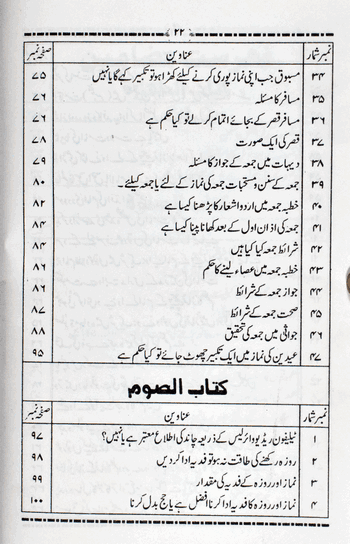 ۲۲
نمبر شمار عناوین صفحہ نمبر
۳۴ مسبوق جب اپنی نماز پوری کرنے کیلئے کھڑا ہو تو تکبیر کہے گا یا نہیں ۷۵
۳۵ مسافر کا مسئلہ ۷۶
۳۶ مسافر قصر کے بجائے اتمام کر لے تو کیا حکم ہے ۷۶
۳۷ قصر کی ایک صورت ۷۸
۳۸ دیہات میں جمعہ کے جواز کا مسئلہ ۷۹
۳۹ جمعہ کے سنن و مستحبات جمعہ کی نماز کے لئے یا جمعہ کیلئے۔ ۸۰
۴۰ خطبہ جمعہ میں اردو اشعار کا پڑھنا کیسا ہے ۸۲
۴۱ جمعہ کی اذان اول کے بعد کھانا پینا کیسا ہے ۸۴
۴۲ شرائط جمعہ کیا کیا ہیں ۸۴
۴۳ خطبہ جمعہ میں عصاء لینے کا حکم ۸۶
۴۴ جواز جمعہ کے شرائط ۸۶
۴۵ صحت جمعہ کے شرائط ۸۷
۴۶ جواثی میں جمعہ کی تحقیق ۸۸
۴۷ عیدین کی نماز میں ایک تکبیر چھوٹ جائے تو کیا حکم ہے ۹۵
کتاب الصوم
نمبر شمار عناوین صفحہ نمبر
۱ ٹیلیفون ریڈیو وائرلیس کے ذریعہ چاند کی اطلاع معتبر ہے یا نہیں؟ ۹۷
۲ روزہ رکھنے کی طاقت نہ ہو تو فدیہ ادا کردیں ۹۸
۳ نماز اور روزہ کے فدیہ کی مقدار ۹۹
۴ نماز اور روزہ کا فدیہ ادا کرنا افضل ہے یا حج بدل کرنا ۱۰۰